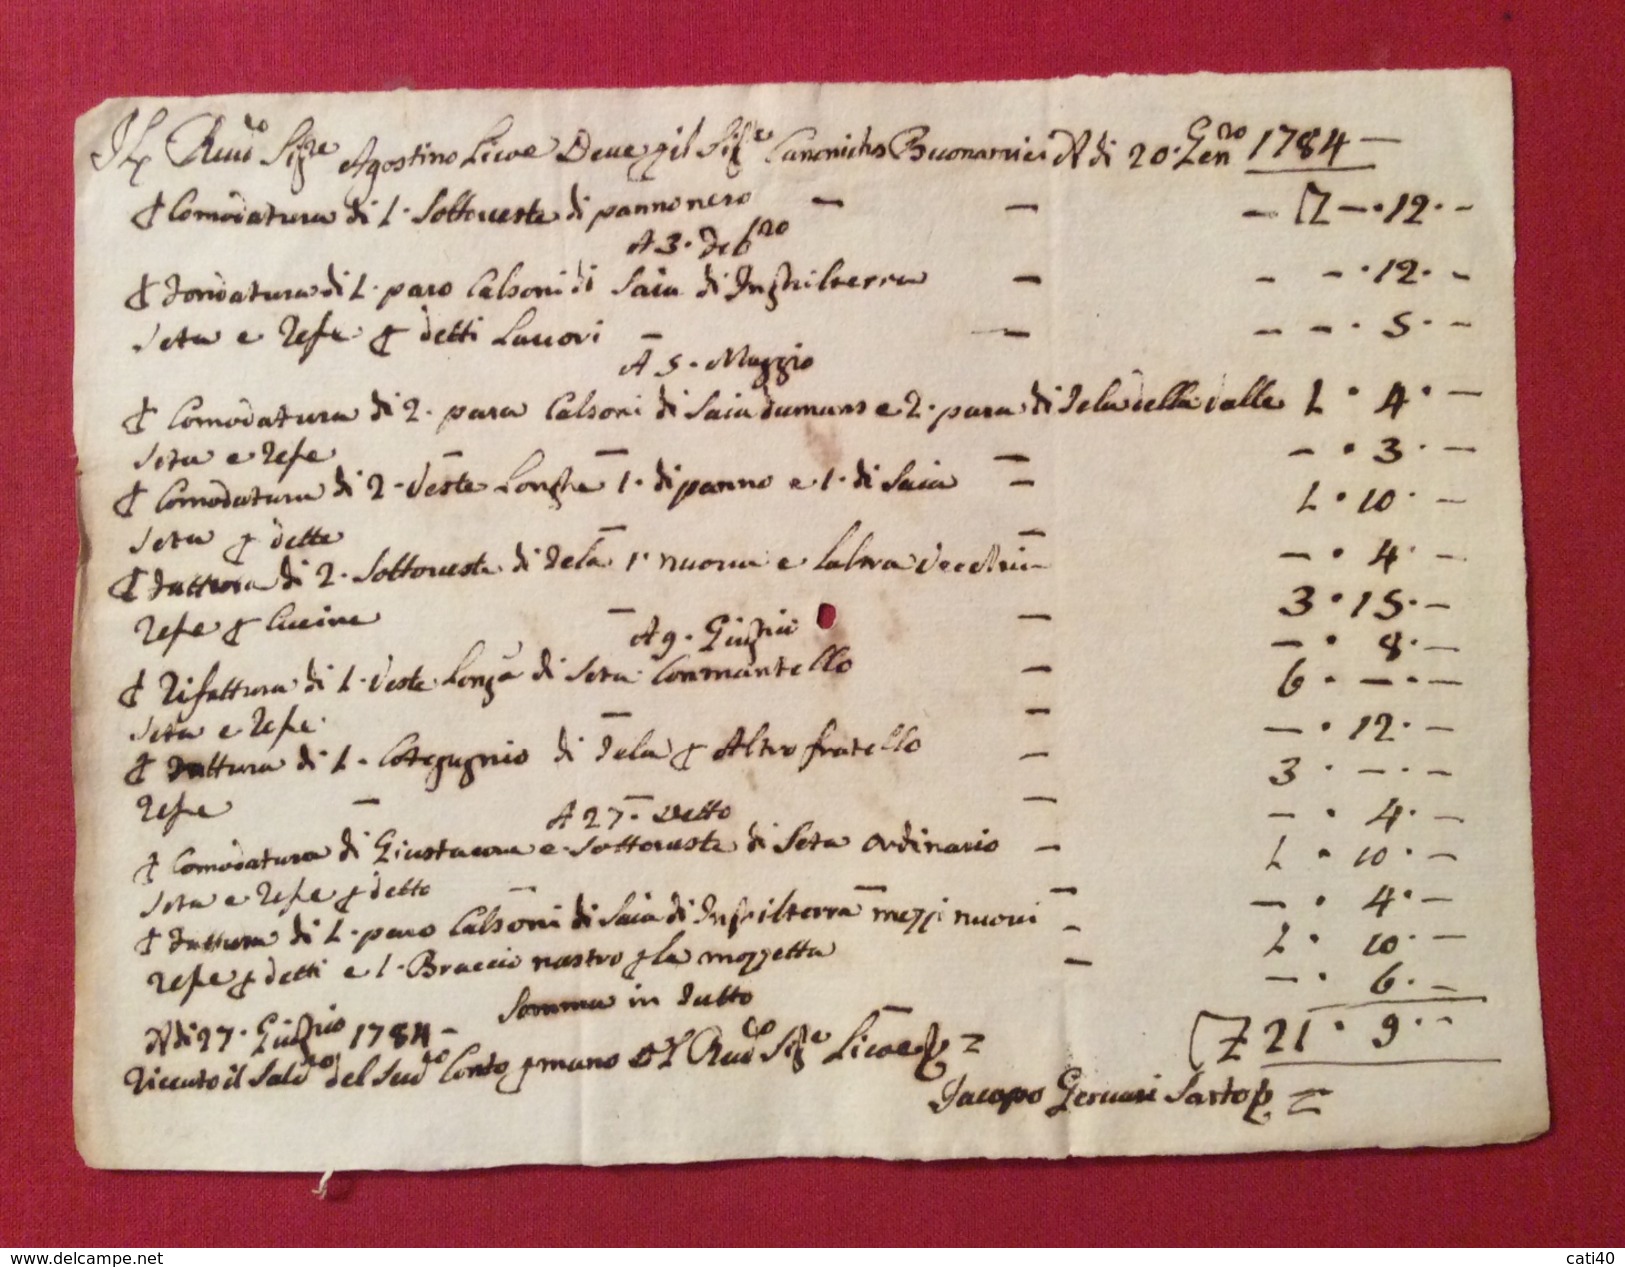 Il Rnd.o Sig.re Agostino Licoe Deve p il Sig.e Canonicho Buonamici A di 20. Gen.ro 1784 —
p Comodatura di 1. Sottoveste di panno nero — — — Z — . 12 . —
A 3. Feb.ro
p Fondatura di 1. paro Calsoni di Saia di Inghilterra — — — . 12 . —
Seta e Refe p detti Lauori — — — — . 5 . —
A 5. Maggio
p Comodatura di 2. para Calsoni di Saia dumans e 2. para di Tela della valle 1 . 4 . —
Seta e Refe — — — . 3 . —
p Comodatura di 2. Veste Longhe 1. di panno e 1. di Saia — 1 . 10 . —
Seta p dette — — — . 4 . —
p Fattura di 2. Sottoveste di Tela 1. nuova e laltra Vecchia — 3 . 15 . —
Refe p Cucire — — — . 8 . —
A 9. Giugnio
p Rifattura di 1. Veste Longa di Seta Con mantello — 6 . — . —
Seta e Refe — — — . 12 . —
p Fattura di 1. di Tela p Altro fratello — 3 . — . —
Refe — — — . 4 . —
A 27. Detto
p Comodatura di Giustacora e Sottoveste di Seta ordinario — 1 . 10 . —
Seta e Refe p detto — — — . 4 . —
p Fattura di 1. paro Calsoni di Saia di Inghilterra mezzi nuovi — 1 . 10 . —
Refe p detti e 1. Braccio nastro p la mozzetta — — . 6 . —
Somma in Tutto Z 21 . 9 . —
A di 27. Giugnio 1784 —
Riceuto il Saldo del Sud.o Conto p mano Dl Rnd.o Sig.e Licoe
Jacopo Geruasi Sarto
cati40